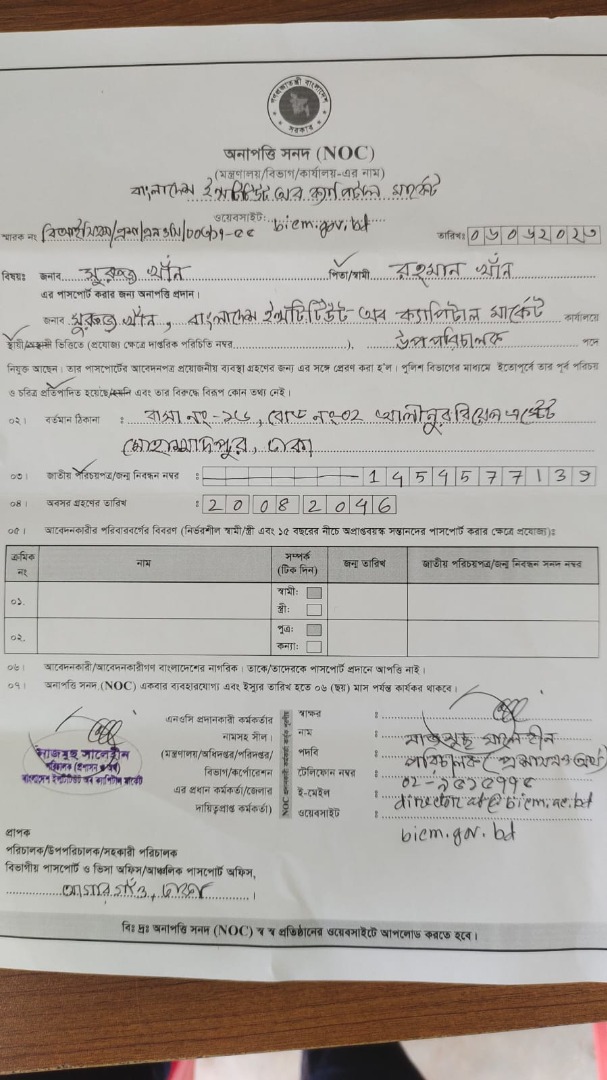 গণপ্রজাতন্ত্রী বাংলাদেশ
সরকার
অনাপত্তি সনদ (NOC)
(মন্ত্রণালয়/বিভাগ/কার্যালয়-এর নাম)
বাংলাদেশ ইন্সটিটিউট অব ক্যাপিটাল মার্কেট
ওয়েবসাইট: biem.gov.bd
স্মারক নং
তারিখঃ 06062023
বিষয়ঃ জনাব সুরুজ খাঁন পিতা/স্বামী রহমান খাঁন
এর পাসপোর্ট করার জন্য অনাপত্তি প্রদান।
জনাব সুরুজ খাঁন, বাংলাদেশ ইন্সটিটিউট অব ক্যাপিটাল মার্কেট কার্যালয়ে
স্থায়ী/অস্থায়ী ভিত্তিতে (প্রযোজ্য ক্ষেত্রে দাপ্তরিক পরিচিতি নম্বর ), উপপরিচালক পদে
নিযুক্ত আছেন। তার পাসপোর্টের আবেদনপত্র প্রয়োজনীয় ব্যবস্থা গ্রহণের জন্য এর সঙ্গে প্রেরণ করা হ'ল। পুলিশ বিভাগের মাধ্যমে ইতোপূর্বে তার পূর্ব পরিচয়
ও চরিত্র প্রতিপাদিত হয়েছে/হয়নি এবং তার বিরুদ্ধে বিরূপ কোন তথ্য নেই।
০২। বর্তমান ঠিকানা : বাসা নং-১৬, রোড নং-০২
মোহাম্মাদপুর, ঢাকা
০৩। জাতীয় পরিচয়পত্র/জন্ম নিবন্ধন নম্বর : 1454577139
০৪। অবসর গ্রহণের তারিখ : 20082046
০৫। আবেদনকারীর পরিবারবর্গের বিবরণ (নির্ভরশীল স্বামী/স্ত্রী এবং ১৫ বছরের নীচে অপ্রাপ্তবয়স্ক সন্তানদের পাসপোর্ট করার ক্ষেত্রে প্রযোজ্য)ঃ
ক্রমিক নং নাম সম্পর্ক (টিক দিন) জন্ম তারিখ জাতীয় পরিচয়পত্র/জন্ম নিবন্ধন সনদ নম্বর
০১. স্বামী:
স্ত্রী:
০২. পুত্র:
কন্যা:
০৬। আবেদনকারী/আবেদনকারীগণ বাংলাদেশের নাগরিক। তাকে/তাদেরকে পাসপোর্ট প্রদানে আপত্তি নাই।
০৭। অনাপত্তি সনদ (NOC) একবার ব্যবহারযোগ্য এবং ইস্যুর তারিখ হতে ০৬ (ছয়) মাস পর্যন্ত কার্যকর থাকবে।
এনওসি প্রদানকারী কর্মকর্তার
নামসহ সীল।
(মন্ত্রণালয়/অধিদপ্তর/পরিদপ্তর/
বিভাগ/কর্পোরেশন
এর প্রধান কর্মকর্তা/জেলার
দায়িত্বপ্রাপ্ত কর্মকর্তা)
স্বাক্ষর :
নাম :
পদবি : পরিচালক (প্রশাসন ও অর্থ)
টেলিফোন নম্বর :
ই-মেইল :
ওয়েবসাইট :
biem.gov.bd
নাজমুছ সালেহীন
পরিচালক (প্রশাসন ও অর্থ)
বাংলাদেশ ইন্সটিটিউট অব ক্যাপিটাল মার্কেট
প্রাপক
পরিচালক/উপপরিচালক/সহকারী পরিচালক
বিভাগীয় পাসপোর্ট ও ভিসা অফিস/আঞ্চলিক পাসপোর্ট অফিস,
আগারগাঁও, ঢাকা।
বিঃ দ্রঃ অনাপত্তি সনদ (NOC) স্ব স্ব প্রতিষ্ঠানের ওয়েবসাইটে আপলোড করতে হবে।